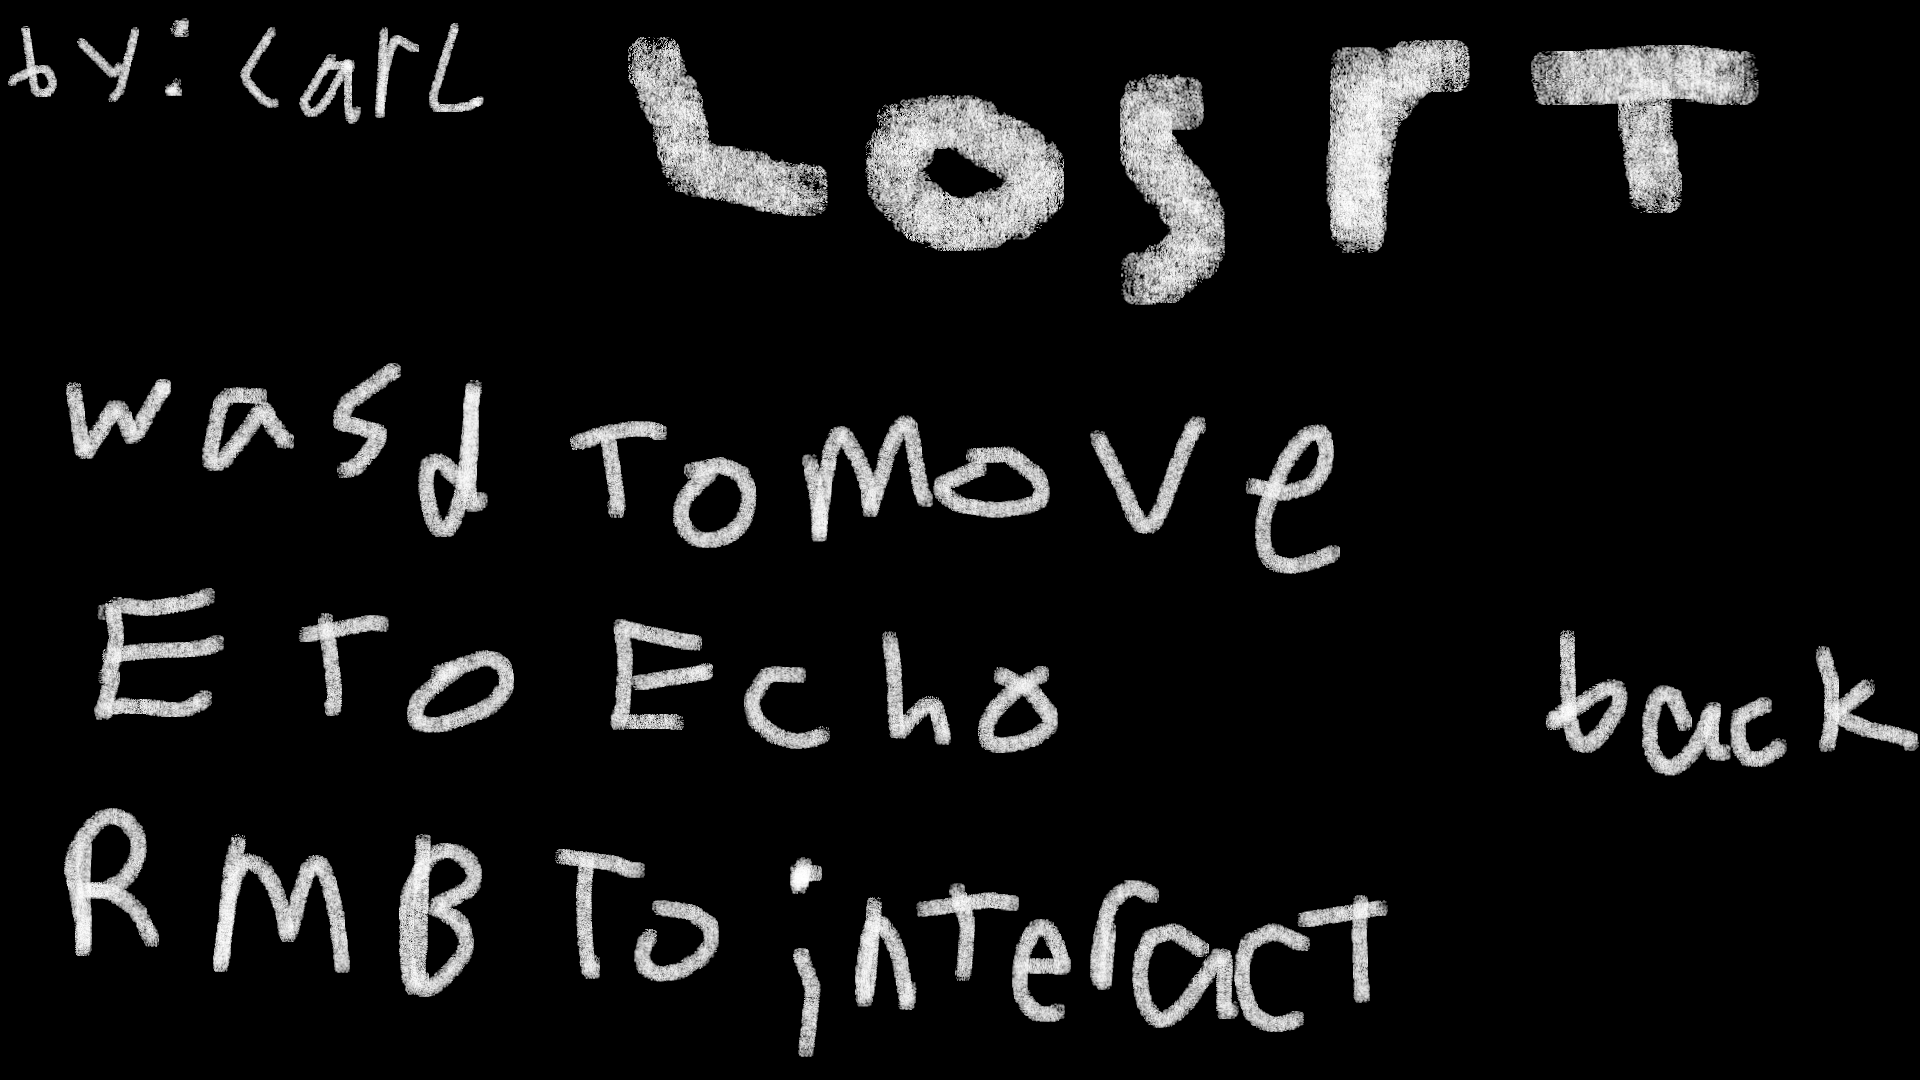 by: Carl
LosrT
wasd To Move
E To Echo
back
RMB To interact